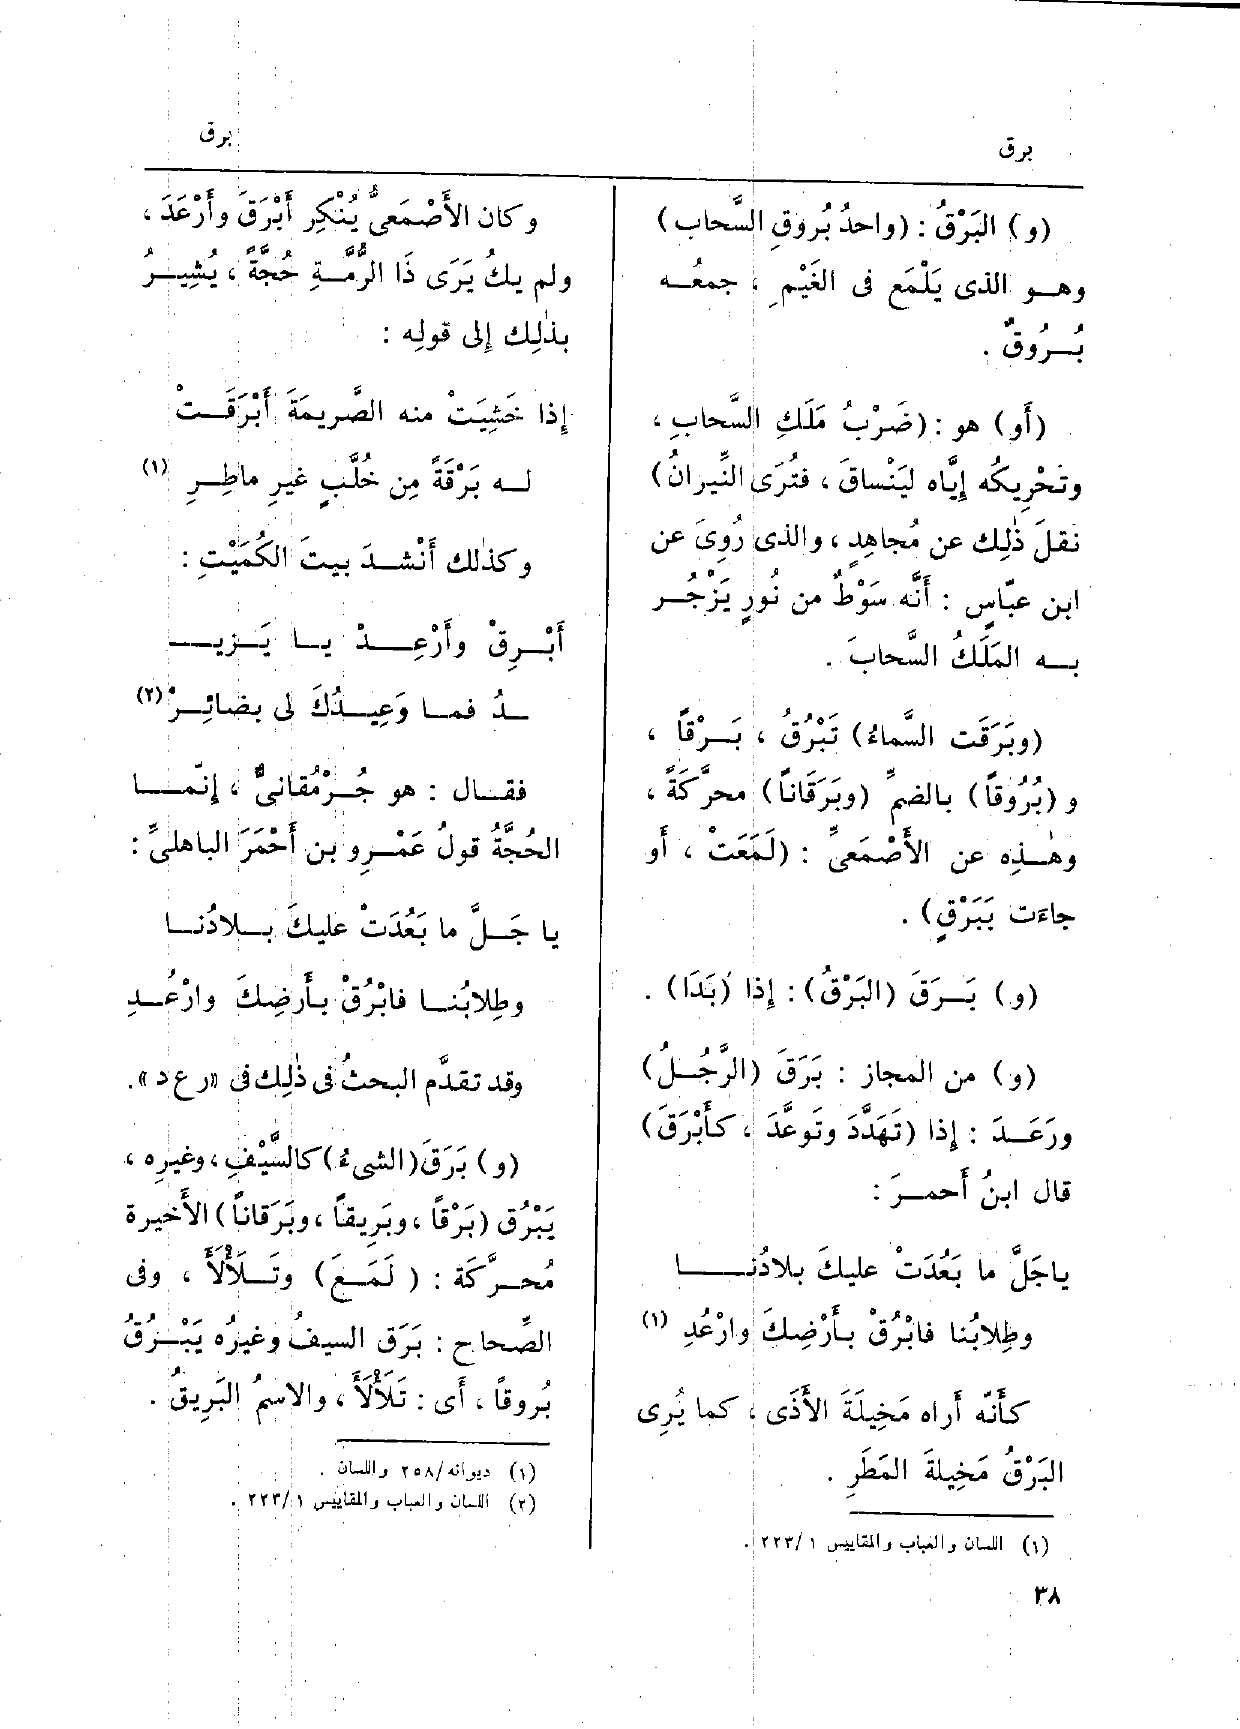 برق
برق
(و) البَرْقُ : (واحدُ بُروقِ السَّحاب)
وهــو الذى يَلْمَع فى الغَيْمِ ، جمعُــه
بُــرُوقٌ .
(أَو) هو : (ضَرْبُ مَلَكِ السَّحابِ ،
وتَحْرِيكُه إِيَّاه ليَنْساقَ ، فتُرَى النِّيرانُ)
نقلَ ذٰلِك عن مُجاهِدٍ ، والذى رُوِىَ عن
ابن عبّاسٍ : أَنَّه سَوْطٌ من نُورٍ يَزْجُــر
بــه المَلَكُ السَّحابَ .
(وبَرَقَت السَّماءُ) تَبْرُقُ ، بَــرْقاً ،
و (بُرُوقاً) بالضمِّ (وبَرَقَاناً) محرَّكَةً ،
وهٰــذِه عن الأَصْمَعىِّ : (لَمَعَتْ ، أَو
جاءَت بَبَرْقٍ) .
(و) بَــرَقَ (البَرْقُ) : إِذا (بَدَا) .
(و) من المجاز : بَرَقَ (الرَّجُــلُ)
ورَعَــدَ : إِذا (تَهَدَّدَ وتَوعَّدَ ، كأَبْرَقَ)
قال ابنُ أَحمــرَ :
ياجَلَّ ما بَعُدَتْ عليكَ بلادُنــا
وطِلابُنا فابْرُقْ بـأَرْضِكَ وارْعُدِ (١)
كأَنَّه أَراه مَخِيلَةَ الأَذَى ، كما يُرِى
البَرْقُ مَخِيلةَ المَطَرِ .
(١) اللسان والعباب والمقاييس ٢٢٣/١ .
٣٨
وكان الأَصْمَعىُّ يُنْكِر أَبْرَقَ وأَرْعَدَ ،
ولم يكُ يَرَى ذَا الرُّمَّــةِ حُجَّةً ، يُشِيــرُ
بذٰلِك إِلى قولِه :
إِذا خَشِيَتْ منه الصَّرِيمَةَ أَبْرَقَــتْ
لــه بَرْقَةً مِن خُلَّبٍ غيرِ ماطِــرِ (١)
وكذٰلك أَنْشــدَ بيتَ الكُمَيْتِ :
أَبْــرِقْ وأَرْعِــدْ يــا يَــزيــ
ــدُ فمــا وَعِيــدُكَ لى بضائِــرْ (٢)
فقــال : هو جُــرْمُقانىٌّ ، إِنّمــا
الحُجَّةُ قولُ عَمْــرِو بن أَحْمَرَ الباهلىِّ :
يا جَــلَّ ما بَعُدَتْ عليكَ بــلادُنــا
وطِلابُنــا فابْرُقْ بـأَرضِكَ وارْعُــدِ
وقد تقدَّم البحثُ فى ذٰلِك فى «رع د» .
(و) بَرَقَ (الشىءُ) كالسَّيْفِ ، وغيرِه ،
يَبْرُق (بَرْقاً ، وبَرِيقاً ، وبَرَقاناً) الأَخيرة
مُحــرَّكَة : (لَمَــعَ) وتَــلأْلأَ ، وفى
الصِّحاح : بَرَق السيفُ وغيرُه يَبْــرُقُ
بُروقاً ، أى : تَلأْلأَ ، والاسمُ البَرِيقُ .
(١) ديوانه/٢٥٨ واللسان .
(٢) اللسان والعباب والمقاييس ٢٢٣/١ .